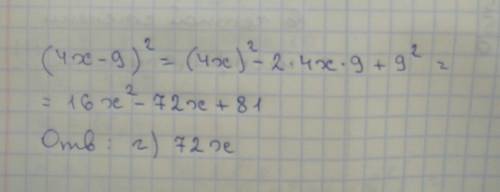 (4x-9)² = (4x)² - 2·4x·9 + 9² =
= 16x² - 72x + 81
Отв: г) 72x